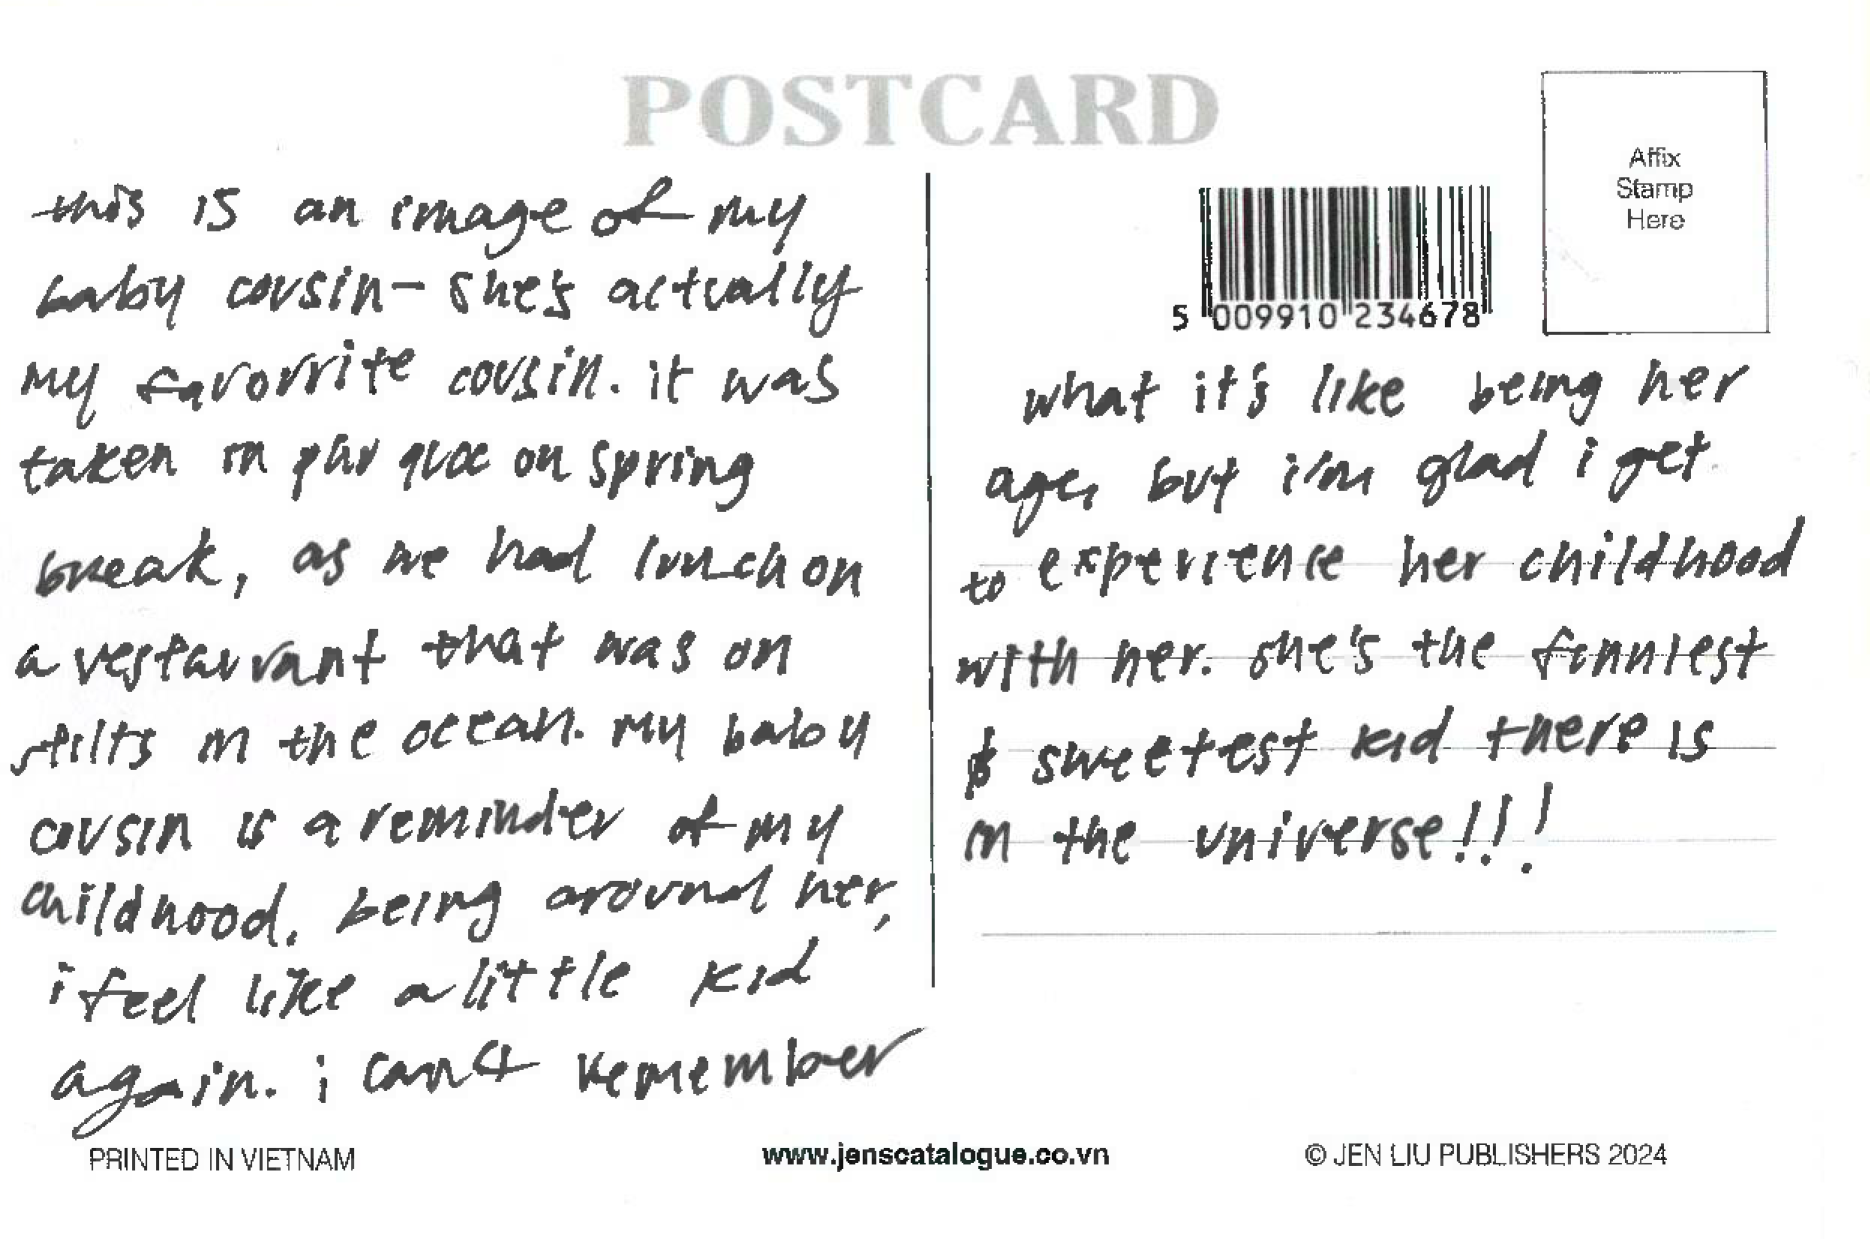 POSTCARD
this is an image of my
baby cousin- she's actually
my favorrite cousin. it was
taken in phu quoc on spring
break, as we had lunch on
a restaurant that was on
stilts in the ocean. my baby
cousin is a reminder of my
childhood. being around her,
i feel like a little kid
again. i can't remember
Affix
Stamp
Here
5 009910 234678
what it's like being her
age, but i'm glad i get
to experience her childhood
with her. she's the funniest
& sweetest kid there is
in the universe!!!
PRINTED IN VIETNAM
www.jenscatalogue.co.vn
© JEN LIU PUBLISHERS 2024